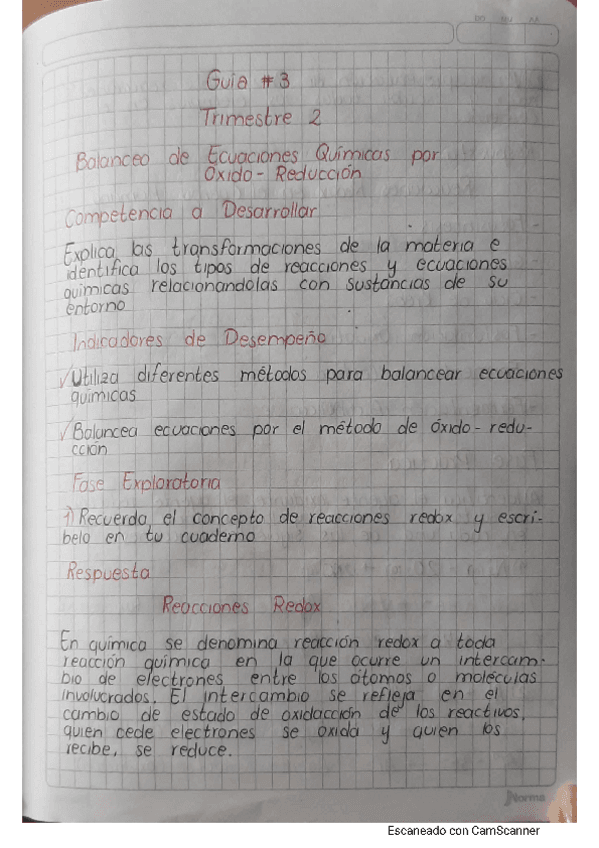 Guia # 3
Trimestre 2
Balanceo de Ecuaciones Químicas por
Oxido - Reducción
Competencia a Desarrollar
Explica las transformaciones de la materia e
identifica los tipos de reacciones y ecuaciones
químicas relacionandolas con sustancias de su
entorno
Indicadores de Desempeño
✓Utiliza diferentes métodos para balancear ecuaciones
químicas
✓Balancea ecuaciones por el método de óxido-redu-
cción
Fase Exploratoria
1) Recuerda el concepto de reacciones redox y escri-
belo en tu cuaderno
Respuesta
Reacciones Redox
En química se denomina reacción redox a toda
reacción química en la que ocurre un intercam-
bio de electrones entre los átomos o moléculas
involucrados. El intercambio se refleja en el
cambio de estado de oxidacción de los reactivos,
quien cede electrones se oxida y quien los
recibe, se reduce.
Norma
Escaneado con CamScanner